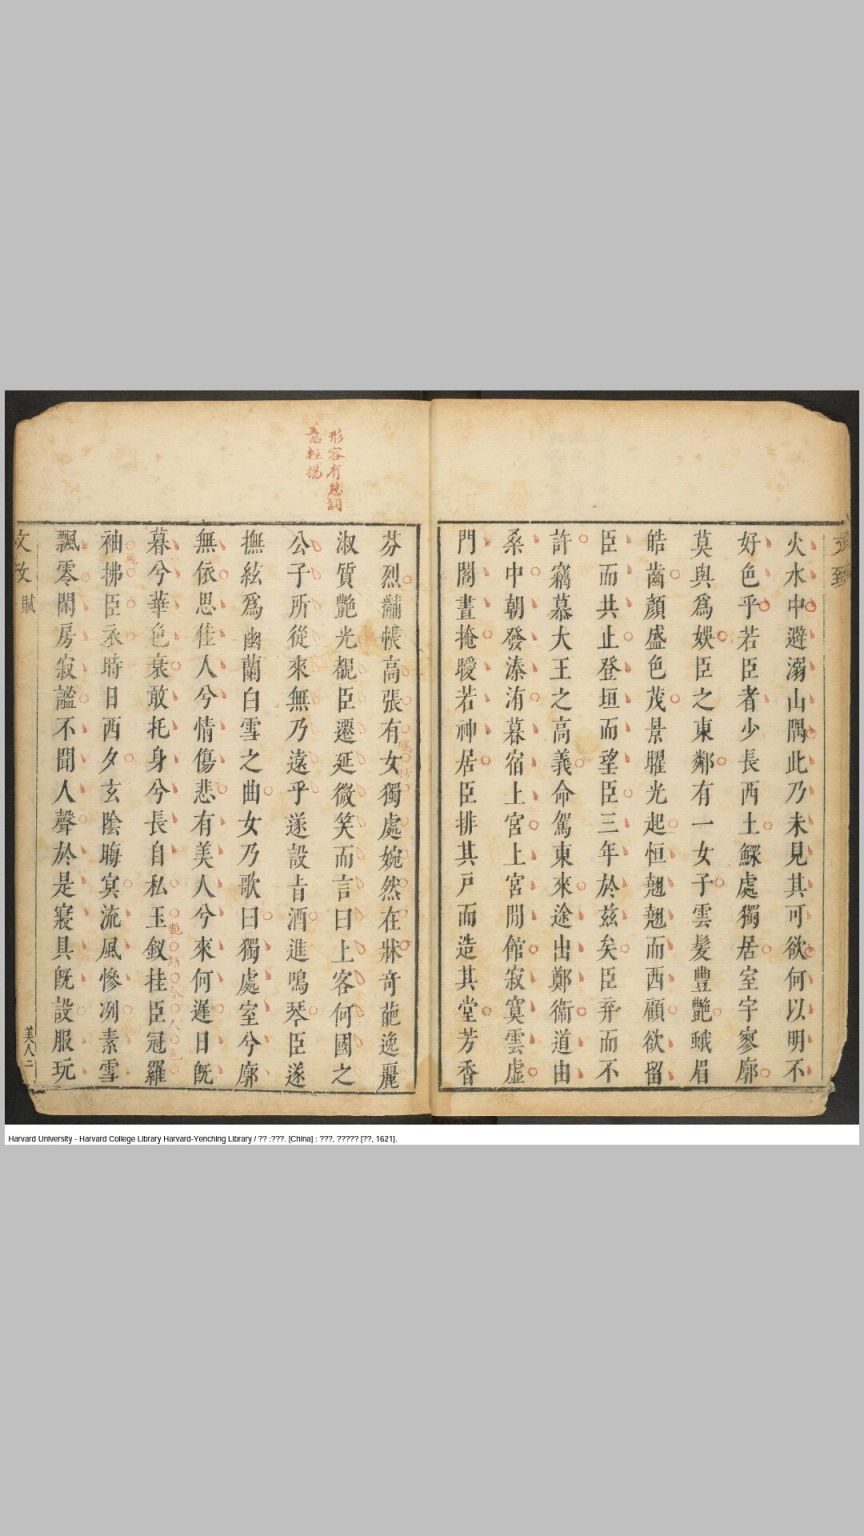 文致
火水中避溺山隅此乃未見其可欲何以明不
好色乎若臣者少長西土鰥處獨居室宇寥廓
莫與爲娛臣之東鄰有一女子雲髮豐艷蛾眉
皓齒顏盛色茂景曜光起恒翹翹而西顧欲留
臣而共止登垣而望臣三年於茲矣臣弃而不
許竊慕大王之高義命駕東來途出鄭衞道由
桑中朝發溱洧暮宿上宮上宮閒館寂寞雲虛
門閣晝掩曖若神居臣排其戶而造其堂芳香
形容有態詞
意輕揚
芬烈黼帳高張有女獨處婉然在牀奇葩逸麗
淑質艷光覩臣遷延微笑而言曰上客何國之
公子所從來無乃遠乎遂設旨酒進鳴琴臣遂
撫絃爲幽蘭白雪之曲女乃歌曰獨處室兮廓
無依思佳人兮情傷悲有美人兮來何遲日旣
暮兮華色衰敢托身兮長自私玉釵挂臣冠羅
袖拂臣衣時日西夕玄陰晦冥流風慘冽素雪
飄零閑房寂謐不聞人聲於是寢具旣設服玩
文致 賦 美人二
Harvard University - Harvard College Library Harvard-Yenching Library / ?? :???. [China] : ???, ????? [??, 1621].